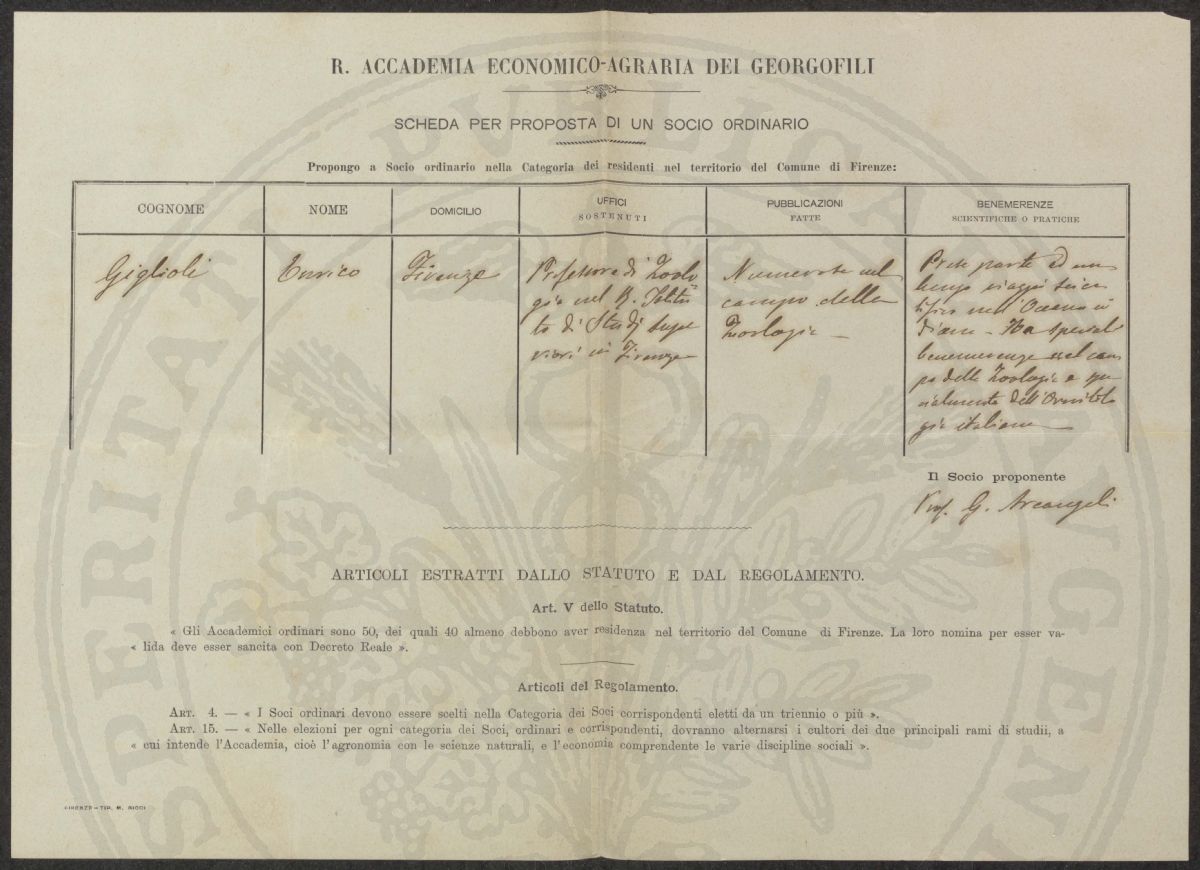 R. ACCADEMIA ECONOMICO-AGRARIA DEI GEORGOFILI
SCHEDA PER PROPOSTA DI UN SOCIO ORDINARIO
Propongo a Socio ordinario nella Categoria dei residenti nel territorio del Comune di Firenze:
COGNOME
NOME
DOMICILIO
UFFICI
SOSTENUTI
PUBBLICAZIONI
FATTE
BENEMERENZE
SCIENTIFICHE O PRATICHE
Giglioli
Enrico
Firenze
Professore di Zoolo
gia nel R. Istitu
to di Studj supe
riori in Firenze
Numerose nel
campo della
Zoologia
Prese parte ad un
lungo viaggio scien
tifico nell'Oceano in
diano - Ha speciali
benemerenze nel cam
po della Zoologia e spe
cialmente dell'Ornitolo
gia italiana
Il Socio proponente
Prof. G. Arcangeli
ARTICOLI ESTRATTI DALLO STATUTO E DAL REGOLAMENTO.
Art. V dello Statuto.
« Gli Accademici ordinari sono 50, dei quali 40 almeno debbono aver residenza nel territorio del Comune di Firenze. La loro nomina per esser va-
« lida deve esser sancita con Decreto Reale ».
Articoli del Regolamento.
ART. 4. — « I Soci ordinari devono essere scelti nella Categoria dei Soci corrispondenti eletti da un triennio o più ».
ART. 15. — « Nelle elezioni per ogni categoria dei Soci, ordinari e corrispondenti, dovranno alternarsi i cultori dei due principali rami di studii, a
« cui intende l'Accademia, cioè l'agronomia con le scienze naturali, e l'economia comprendente le varie discipline sociali ».
FIRENZE - TIP. M. RICCI